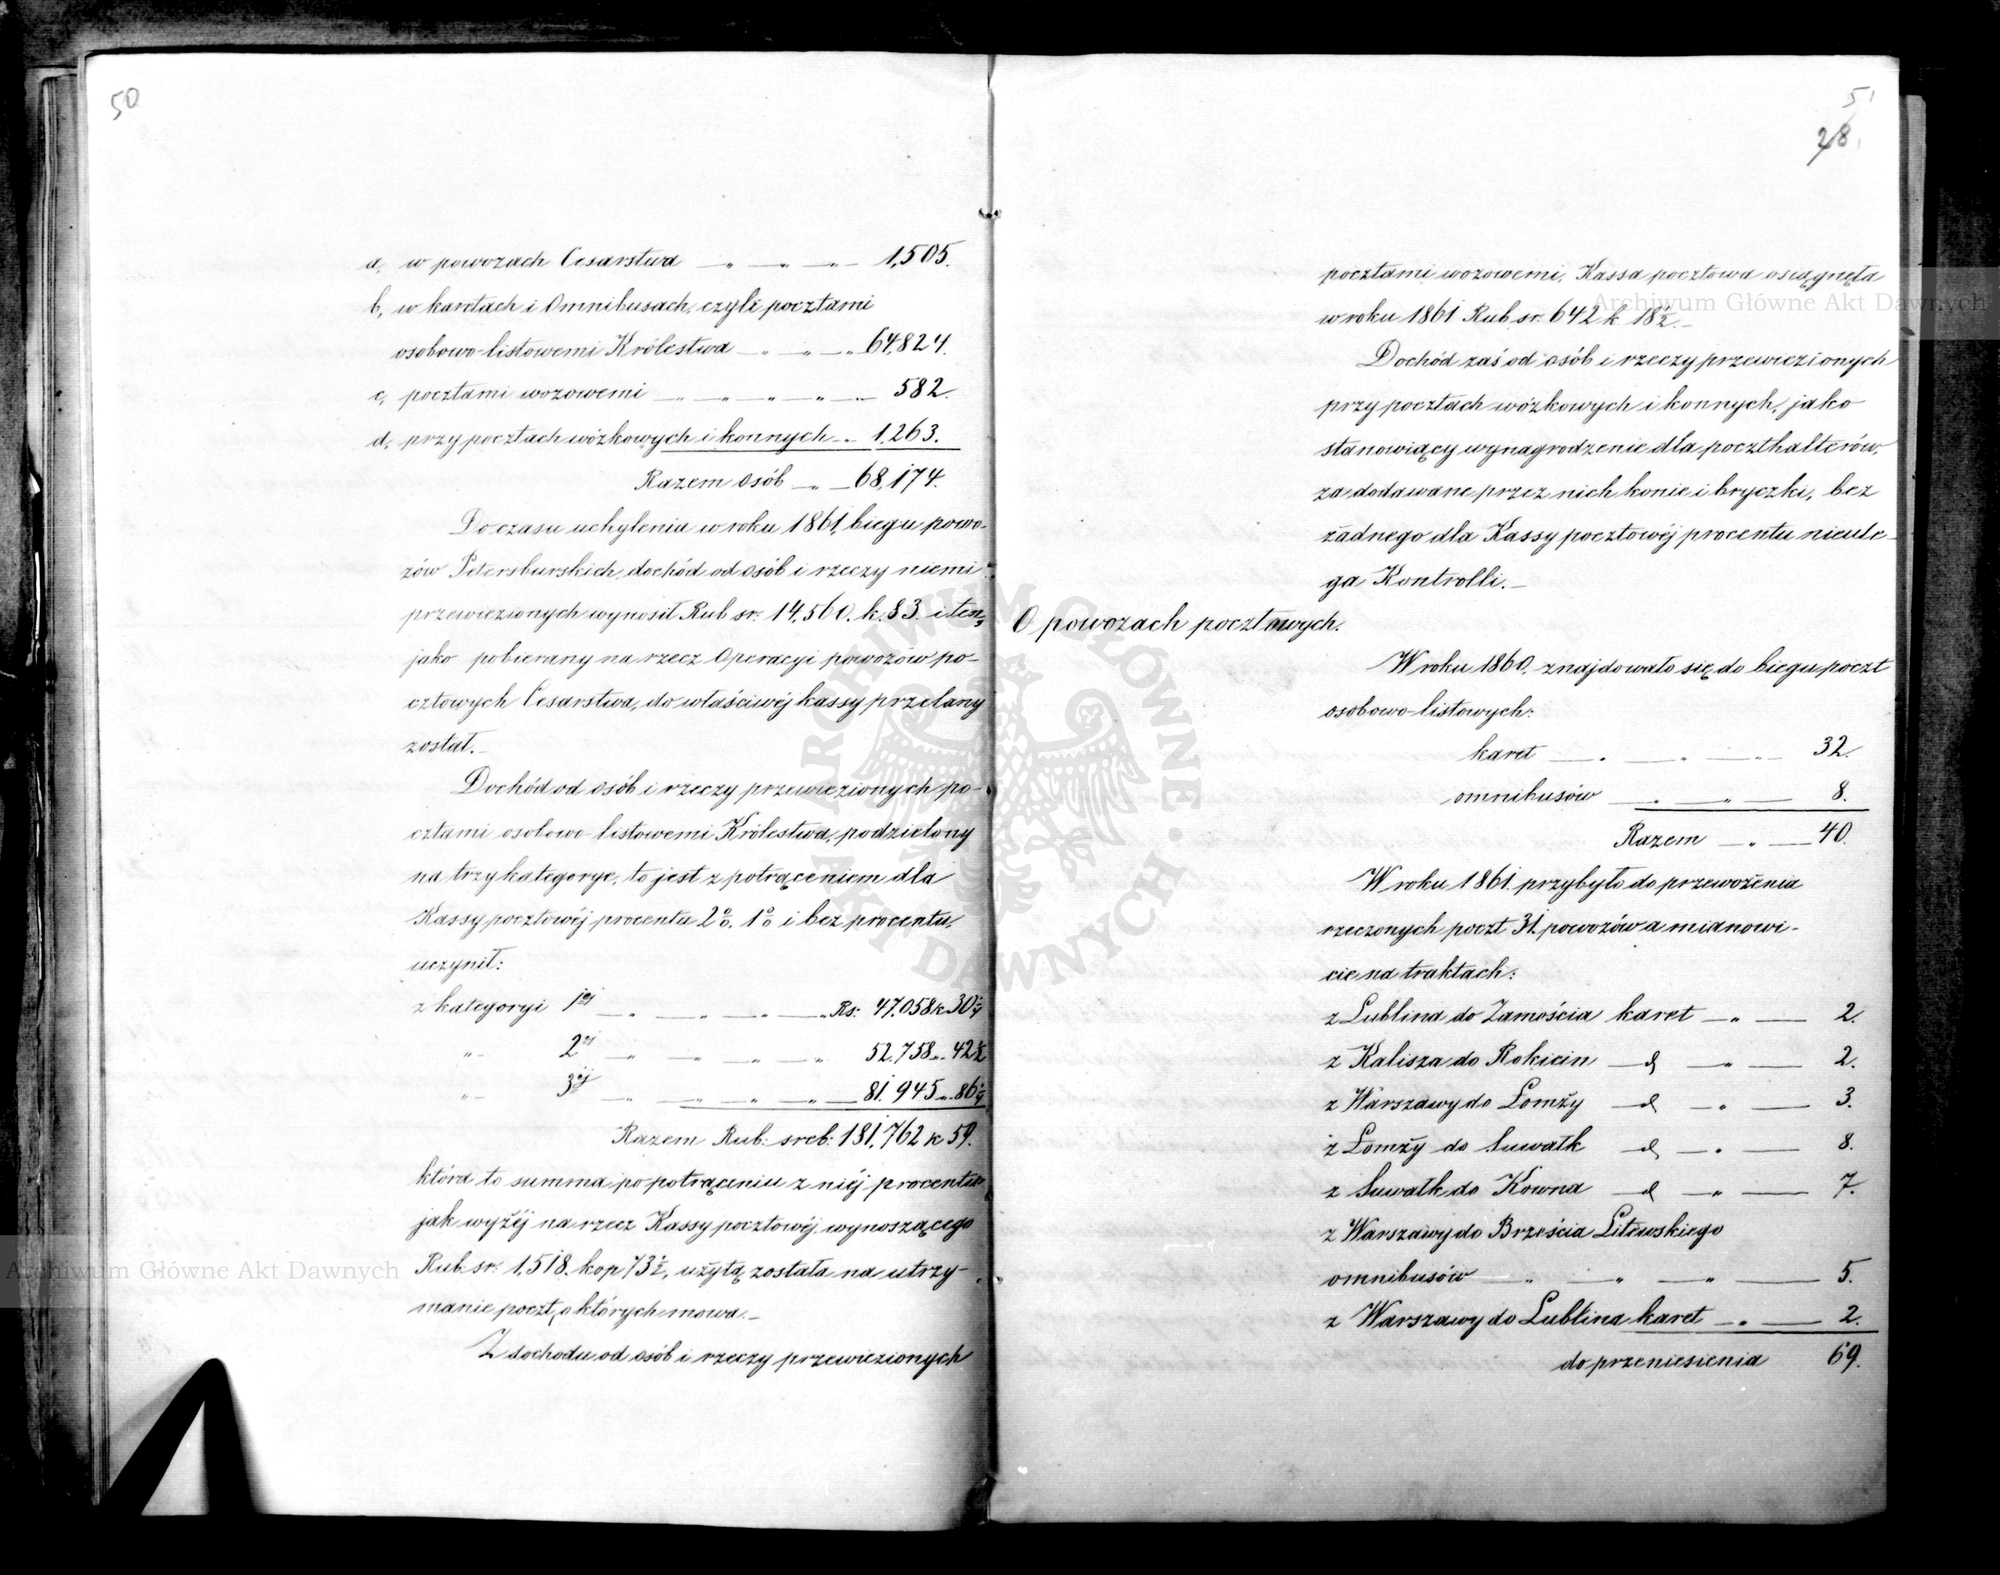 50
a, w powozach Cesarstwa — „ — „ — „ — 1,505.
b, w karetach i Omnibusach, czyli pocztami
osobowo-listowemi Królestwa — „ — „ — „ 64,824.
c, pocztami wozowemi — „ — „ — „ — „ — „ — 582.
d, przy pocztach wózkowych i konnych — „ 1,263.
Razem osób — „ — 68,174.
Do czasu uchylenia w roku 1861, biegu powo-
zów Petersburskich, dochód od osób i rzeczy niemi
przewiezionych wynosił Rub sr: 14,560. k. 83. i ten,
jako pobierany na rzecz Operacyi powozów po-
cztowych Cesarstwa, do właściwéj kassy przelany
został.—
Dochód od osób i rzeczy przewiezionych po-
cztami osobowo-listowemi Królestwa, podzielony
na trzy kategorye, to jest z potrąceniem dla
Kassy pocztowéj procentu 2%, 1% i bez procentu,
uczynił:
z kategoryi 1ej — „ — „ — „ — „ Rs: 47,058 k 30 1/4
„ — 2ej — „ — „ — „ — „ 52,758 „ 42 1/2
„ — 3ej — „ — „ — „ — „ — 81,945 „ 86 1/4
Razem Rub: sreb: 181,762 k 59.
która to summa po potrąceniu z niéj procentu
jak wyżéj na rzecz Kassy pocztowéj, wynoszącego
Rub. sr: 1,518. kop 73 1/2, użytą została na utrzy-
manie poczt, o których mowa.—
Z dochodu od osób i rzeczy przewiezionych
51
28.
pocztami wozowemi, Kassa pocztowa osiągnęła
w roku 1861 Rub. sr: 642 k 18 1/2.—
Dochód zaś od osób i rzeczy przewiezionych
przy pocztach wózkowych i konnych, jako
stanowiący wynagrodzenie dla poczthalterów,
za dodawane przez nich konie i bryczki, bez
żadnego dla Kassy pocztowéj procentu nieule-
ga Kontrolli.—
O powozach pocztowych.
W roku 1860, znajdowało się do biegu poczt
osobowo-listowych:
karet — „ — „ — „ — 32.
omnibusów — „ — „ — 8.
Razem — „ — 40.
W roku 1861 przybyło do przewożenia
rzeczonych poczt 31. powozów a mianowi-
cie na traktach:
z Lublina do Zamościa karet — „ — 2.
z Kalisza do Rokicin — d — „ — 2.
z Warszawy do Łomży — d — „ — 3.
z Łomży do Suwałk — d — „ — 8.
z Suwałk do Kowna — d — „ — 7.
z Warszawy do Brześcia Litewskiego
omnibusów — „ — „ — „ — 5.
z Warszawy do Lublina karet — „ — 2.
do przeniesienia 69.
Archiwum Główne Akt Dawnych
Archiwum Główne Akt Dawnych
ARCHIWUM GŁÓWNE AKT DAWNYCH